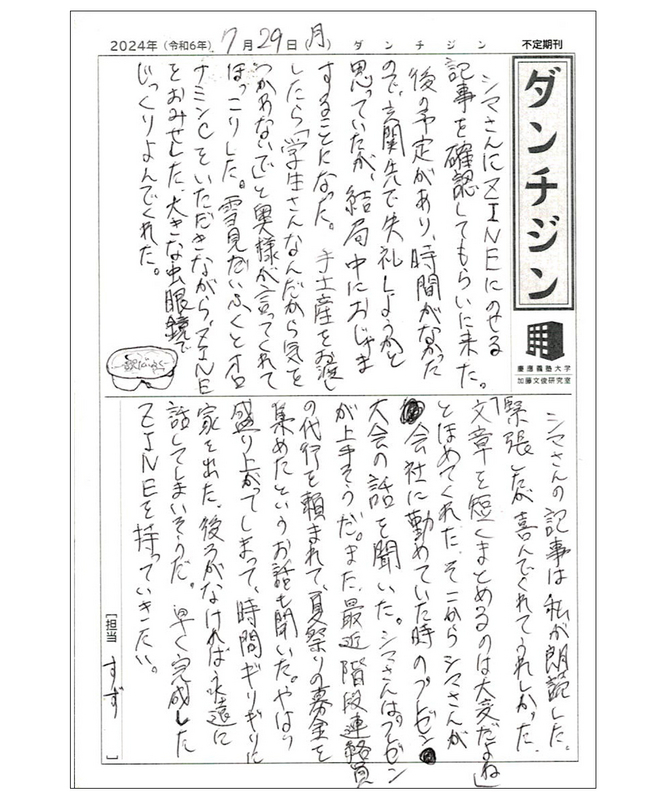 2024年（令和6年）7月29日（月）　ダンチジン　不定期刊
ダンチジン
慶應義塾大学
加藤文俊研究室
シマさんにZINEにのせる
記事を確認してもらいに来た。
後の予定があり、時間がなかった
ので、玄関先で失礼しようかと
思っていたが、結局中におじゃま
することになった。手土産をお渡し
したら「学生さんなんだから気を
つかわないで」と奥様が言ってくれて
ほっこりした。雪見だいふくとオロ
ナミンCをいただきながら、ZINE
をおみせした。大きな虫眼鏡で
じっくりよんでくれた。
雪見だいふく
シマさんの記事は私が朗読した。
緊張したが喜んでくれてうれしかった。
「文章を短くまとめるのは大変だよね」
とほめてくれた。そこからシマさんが
会社に勤めていた時のプレゼン
大会の話を聞いた。シマさんはプレゼン
が上手そうだ。また、最近階段連絡員
の代行を頼まれて、夏祭りの募金を
集めたというお話も聞いた。やはり
盛り上がってしまって、時間ギリギリに
家を出た。後ろがなければ永遠に
話してしまいそうだ。早く完成した
ZINEを持っていきたい。
［担当　すず　］